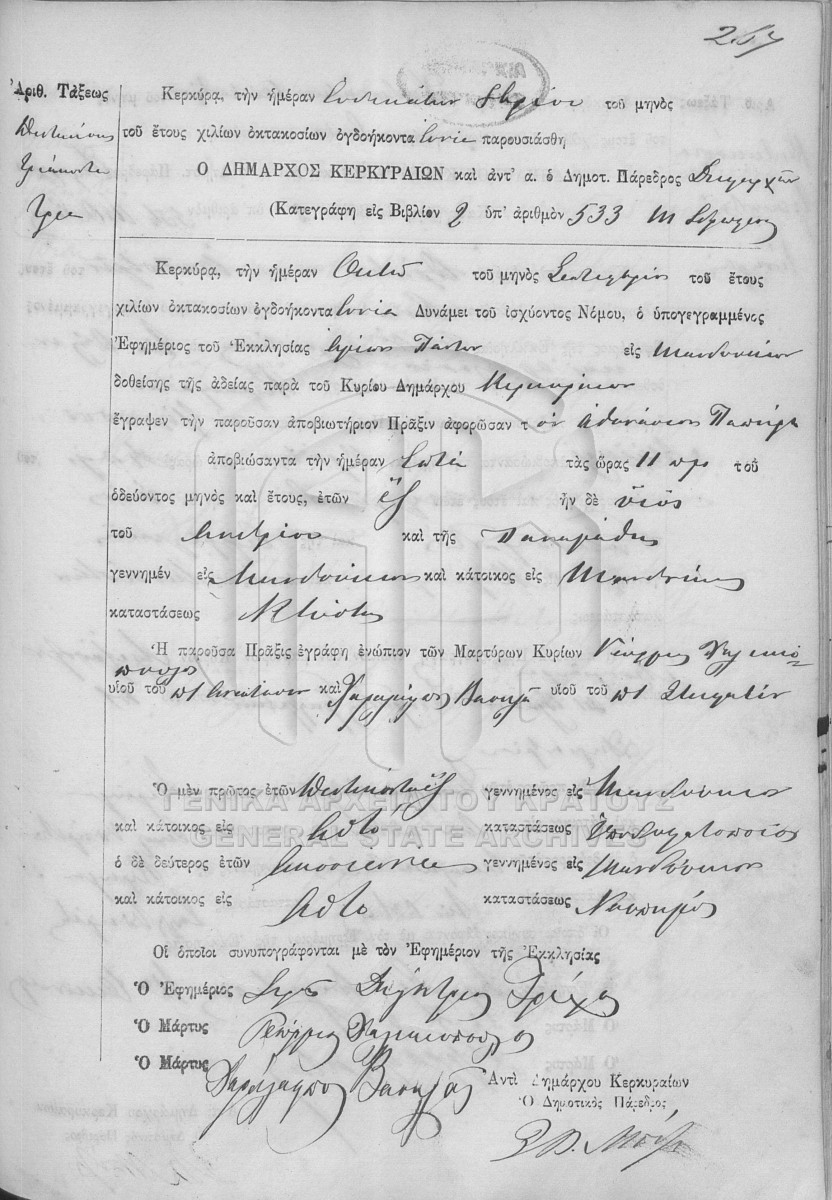 257
Ἀριθ. Τάξεως
Πεντακόσια
Τριάκοντα
Τρία
Κερκύρα, τὴν ἡμέραν ἑνδεκάτην 7βρίου τοῦ μηνὸς
τοῦ ἔτους χιλίων ὀκτακοσίων ὀγδοήκοντα ἐννέα παρουσιάσθη
Ο ΔΗΜΑΡΧΟΣ ΚΕΡΚΥΡΑΙΩΝ καὶ ἀντ' α. ὁ Δημοτ. Πάρεδρος
(Κατεγράφη εἰς Βιβλίον 2 ὑπ' ἀριθμὸν 533
Κερκύρα, τὴν ἡμέραν Ὀκτὼ τοῦ μηνὸς Σεπτεμβρίου τοῦ ἔτους
χιλίων ὀκτακοσίων ὀγδοήκοντα ἐννέα Δυνάμει τοῦ ἰσχύοντος Νόμου, ὁ ὑπογεγραμμένος
Ἐφημέριος τοῦ Ἐκκλησίας Ἁγίων Πάντων εἰς Μανδούκιον
δοθείσης τῆς ἀδείας παρὰ τοῦ Κυρίου Δημάρχου Κερκυραίων
ἔγραψεν τὴν παροῦσαν ἀποβιωτήριον Πρᾶξιν ἀφορῶσαν τ ὸν Ἀθανάσιον
ἀποβιώσαντα τὴν ἡμέραν ἑπτὰ τὰς ὥρας 11 πμ τοῦ
ὁδεύοντος μηνὸς καὶ ἔτους, ἐτῶν ἓξ ἦν δὲ υἱὸς
τοῦ Ἀνδρέου καὶ τῆς
γεννημέν εἰς Μανδούκιον καὶ κάτοικος εἰς Μανδούκιον
καταστάσεως
Ἡ παροῦσα Πρᾶξις ἐγράφη ἐνώπιον τῶν Μαρτύρων Κυρίων Γεώργιος Χαλικιό-
πουλος
υἱοῦ τοῦ πτ καὶ Χαράλαμπος Βασιλᾶ υἱοῦ τοῦ πτ Σταματίου
ΓΕΝΙΚΑ ΑΡΧΕΙΑ ΤΟΥ ΚΡΑΤΟΥΣ
GENERAL STATE ARCHIVES
Ὁ μὲν πρῶτος ἐτῶν πεντήκοντα ἓξ γεννημένος εἰς Μανδούκιον
καὶ κάτοικος εἰς αὐτὸ καταστάσεως Ὑποδηματοποιὸς
ὁ δὲ δεύτερος ἐτῶν εἴκοσι εννέα γεννημένος εἰς Μανδούκιον
καὶ κάτοικος εἰς αὐτὸ καταστάσεως Ναυπηγὸς
Οἱ ὁποῖοι συνυπογράφονται μὲ τὸν Ἐφημέριον τῆς Ἐκκλησίας
Ὁ Ἐφημέριος Δημήτριος
Ὁ Μάρτυς Γεώργιος Χαλικιόπουλος
Ὁ Μάρτυς Χαράλαμπος Βασιλᾶς
Ἀντὶ Δημάρχου Κερκυραίων
Ὁ Δημοτικὸς Πάρεδρος,